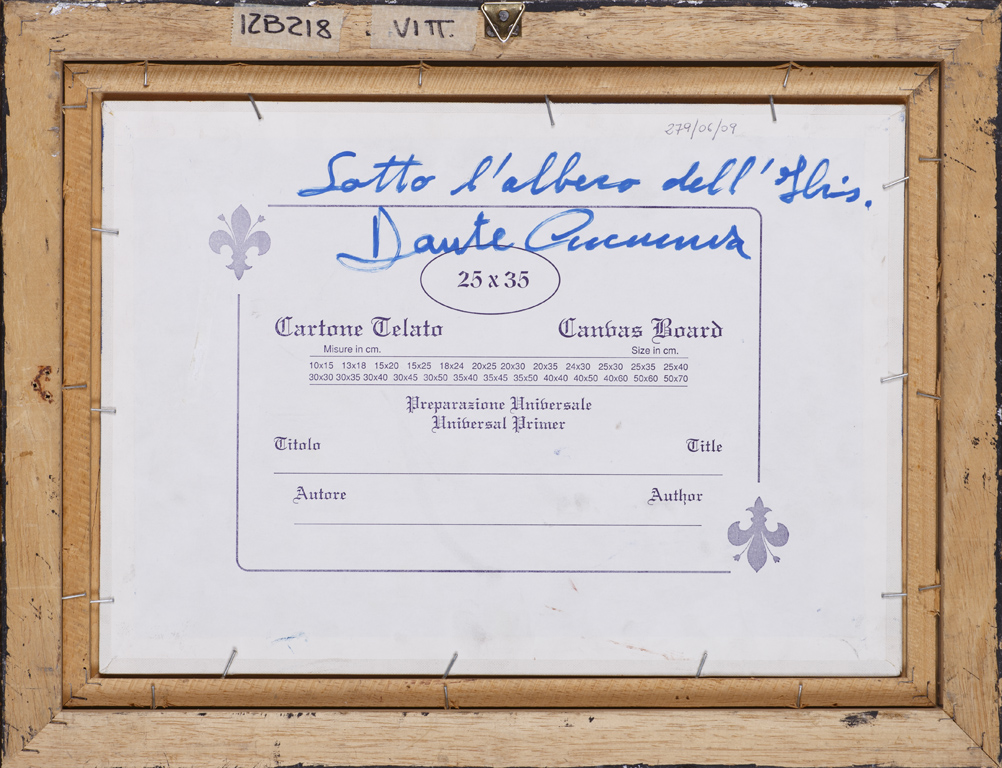 12B218 . VITT.
279/06/09
Sotto l'albero dell'Ibis.
Dante
25 x 35
Cartone Telato Canvas Board
Misure in cm. Size in cm.
10x15 13x18 15x20 15x25 18x24 20x25 20x30 20x35 24x30 25x30 25x35 25x40
30x30 30x35 30x40 30x45 30x50 35x40 35x45 35x50 40x40 40x50 40x60 50x60 50x70
Preparazione Universale
Universal Primer
Titolo Title
Autore Author